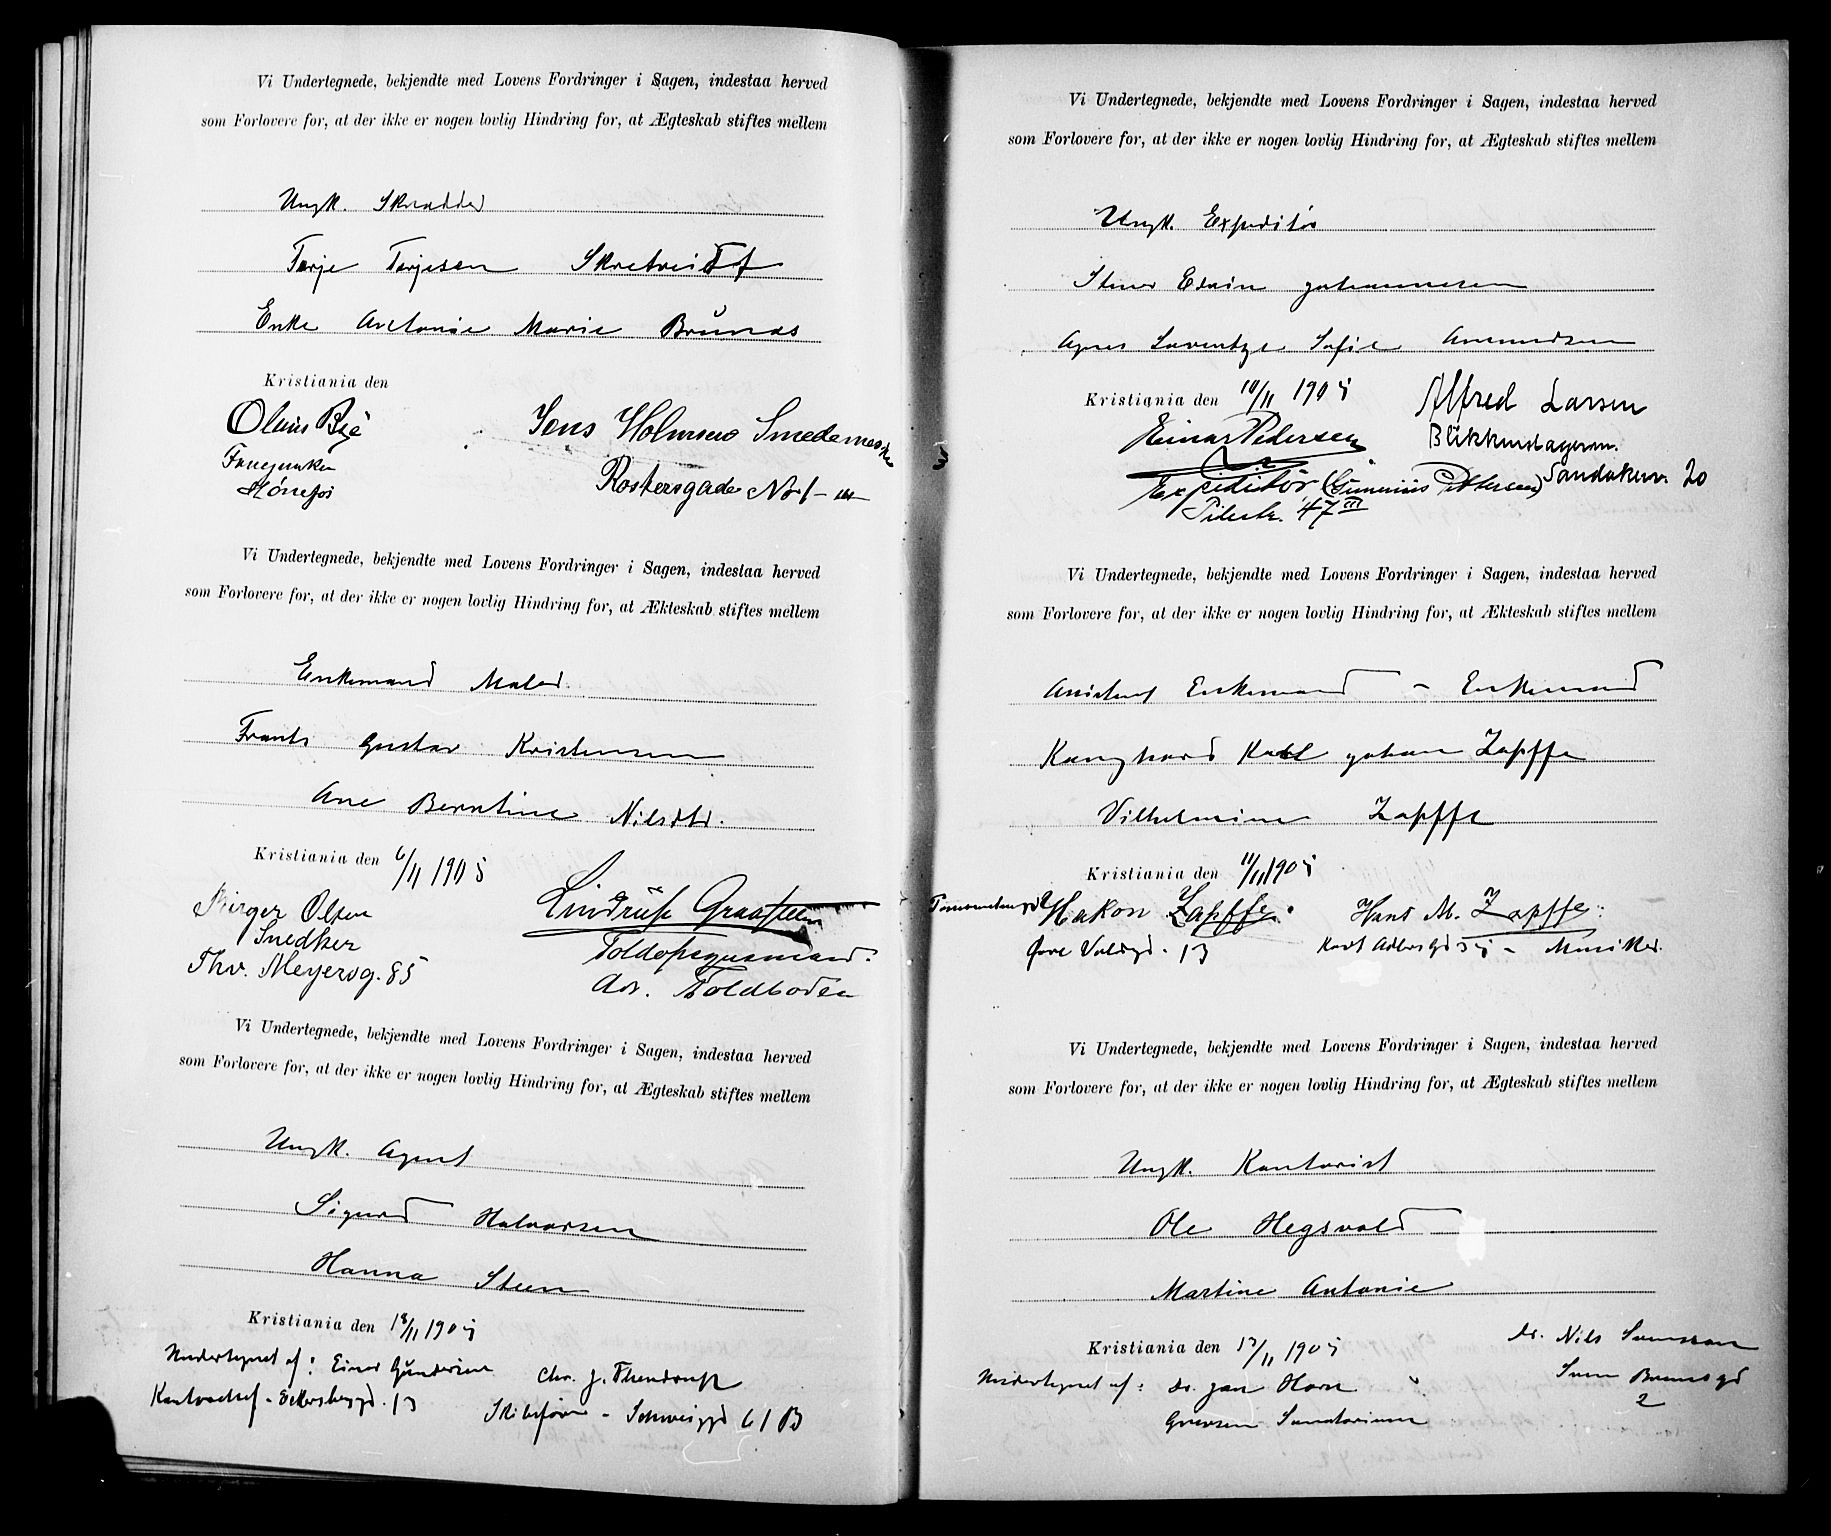 Vi Undertegnede, bekjendte med Lovens Fordringer i Sagen, indestaa herved
som Forlovere for, at der ikke er nogen lovlig Hindring for, at Ægteskab stiftes mellem
Ungk. Skrædder
Terje Terjesen
Enke Antonie Marie Brunæs
Kristiania den
Olaus Bye
Jens Holmsen Smedemester
Hønefos
Rostersgade No 1 - III
Vi Undertegnede, bekjendte med Lovens Fordringer i Sagen, indestaa herved
som Forlovere for, at der ikke er nogen lovlig Hindring for, at Ækteskab stiftes mellem
Enkemand Maler
Frants Gustav Kristensen
Ane Berntine Nilsdtr.
Kristiania den 6/11 1905
Birger Olsen
Snedker
Thv. Meyersg. 85
Toldopsynsmand.
Adr. Toldboden
Vi Undertegnede, bekjendte med Lovens Fordringer i Sagen, indestaa herved
som Forlovere for, at der ikke er nogen lovlig Hindring for, at Ægteskab stiftes mellem
Ungk. Agent
Sigurd Halvorsen
Hanna Steen
Kristiania den 18/11 1905
Undertegnet af: Einar Gundersen
Chr. J. Thendrup
Kontorchef - 13
Skibsfører - Schweiggd 61 B
Vi Undertegnede, bekjendte med Lovens Fordringer i Sagen, indestaa herved
som Forlovere for, at der ikke er nogen lovlig Hindring for, at Ægteskab stiftes mellem
Ungk. Expeditør
Edvin Johannesen
Agnes Laurentze Sofie Amundsen
Kristiania den 10/11 1905
Alfred Larsen
Einar Pedersen
Blikkenslagerm.
Expeditør (Gunerius Pettersen)
Sandakerv. 20
Pilestr. 47 III
Vi Undertegnede, bekjendte med Lovens Fordringer i Sagen, indestaa herved
som Forlovere for, at der ikke er nogen lovlig Hindring for, at Ækteskab stiftes mellem
Assistent Enkemand - Enkemand
Karl Johan Zapffe
Vilhelmine Zapffe
Kristiania den 11/11 1905
Hakon Zapffe.
Hans M. Zapffe.
Øvre Voldgd. 13
Musiker.
Vi Undertegnede, bekjendte med Lovens Fordringer i Sagen, indestaa herved
som Forlovere for, at der ikke er nogen lovlig Hindring for, at Ægteskab stiftes mellem
Ungk. Kontorist
Ole Hegsvold
Martine Antonie
Kristiania den 13/11 1905
Dr. Nils Svensson
Undertegnet af: Dr. Jan Horn
Sven Brunsgd
2
Grefsen Sanatorium